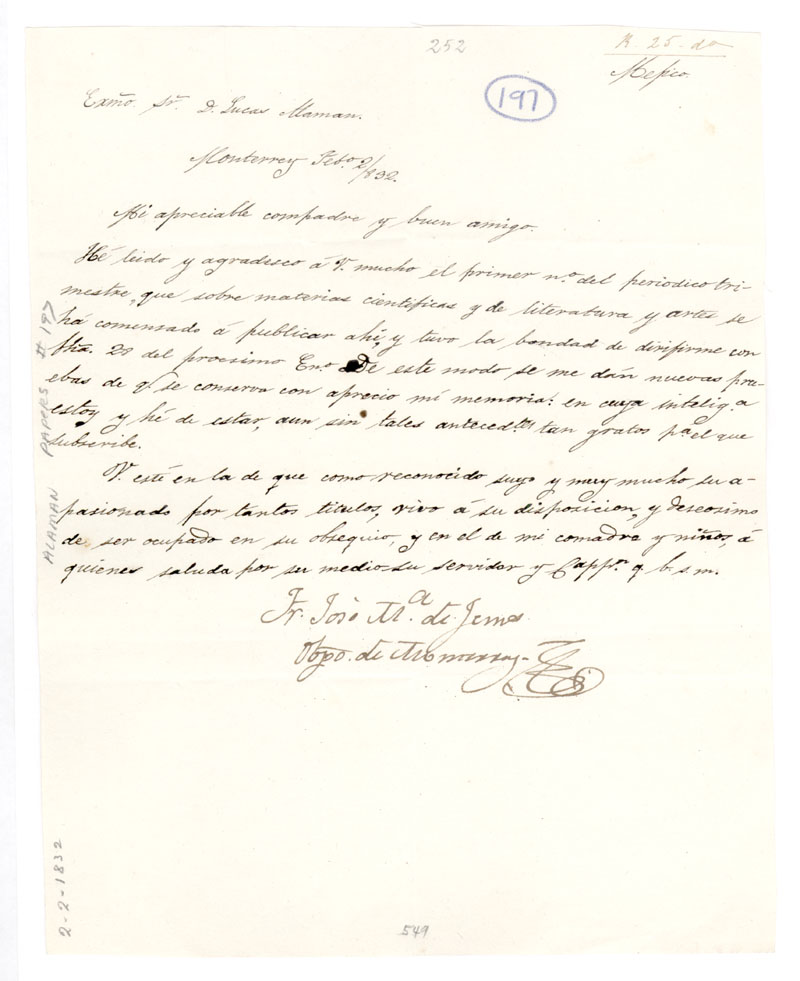 252
R. 25. do
Mejico
197
Exmo. Sr. D. Lucas Alaman.
Monterrey Febo. 2/832.
Mi apreciable compadre y buen amigo.
Hé leido y agradesco á V. mucho el primer no. del periodico tri-
mestre, que sobre materias cientificas y de literatura y artes se
há comensado á publicar ahi, y tuvo la bondad de dirifirme con
fha. 20 del procsimo Ero. De este modo se me dán nuevas pru-
ebas de q. se conserva con aprecio mi memoria: en cuya intelig.a
estoy y hé de estar, aun sin tales anteced.tes tan gratos pa. el que
subscribe.
V. esté en la de que como reconocido suyo y muy mucho su a-
pasionado por tantos titulos, vivo á su disposicion, y deseosimo
de ser ocupado en su obsequio, y en el de mi comadre y niños, á
quienes saluda por su medio su servidor y Capp.n q. b. s. m.
Fr. José Ma. de Jesus
Obpo. de Monterrey
ALAMAN PAPERS # 197
2-2-1832
549